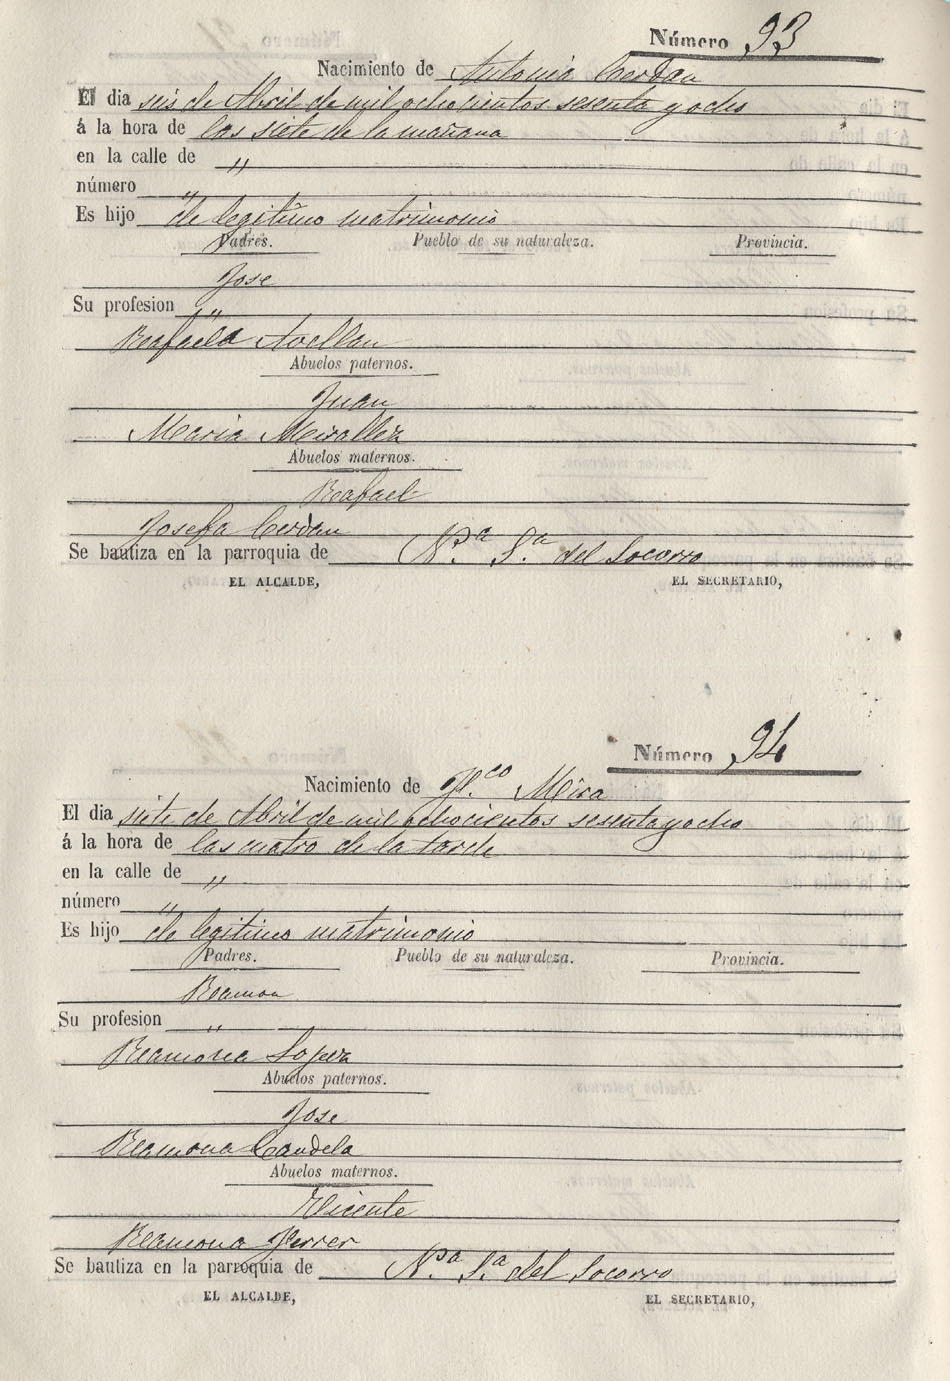 Número 93
Nacimiento de Antonia Cerdan
El dia seis de Abril de mil ochocientos sesenta y ocho
á la hora de las siete de la mañana
en la calle de "
número "
Es hijo de legitimo matrimonio
Padres. Pueblo de su naturaleza. Provincia.
Jose
Su profesion "
Rafaela Avellan
Abuelos paternos.
Juan
Maria Mirallez
Abuelos maternos.
Rafael
Josefa Cerdan
Se bautiza en la parroquia de N.ra S.a del Socorro
EL ALCALDE, EL SECRETARIO,
Número 94
Nacimiento de Fr.co Mira
El dia siete de Abril de mil ochocientos sesenta y ocho
á la hora de las cuatro de la tarde
en la calle de "
número "
Es hijo de legitimo matrimonio
Padres. Pueblo de su naturaleza. Provincia.
Ramon
Su profesion "
Ramona Lopez
Abuelos paternos.
Jose
Ramona Candela
Abuelos maternos.
Vicente
Ramona Ferrer
Se bautiza en la parroquia de N.ra S.a del Socorro
EL ALCALDE, EL SECRETARIO,